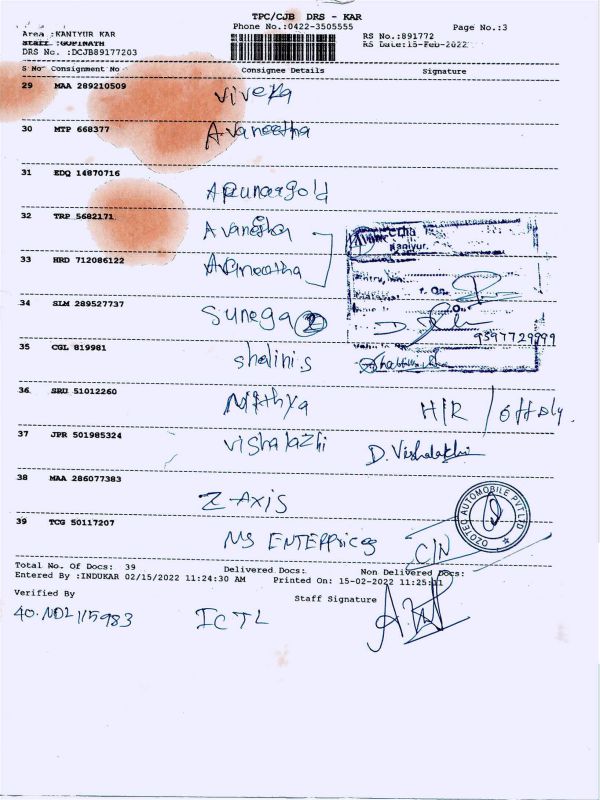 TPC/CJB DRS - KAR
Phone No.:0422-3505555
Page No.:3
Area :KANIYUR KAR
Staff :GOPINATH
DRS No. :DCJB89177203
RS No.:891772
RS Date:15-Feb-2022
S No Consignment No Consignee Details Signature
29 MAA 289210509 viveka
30 MTP 668377 A.vaneetha
31 EDQ 14870716
32 TRP 5682171
33 HRD 712086122
Kaniyur.
34 SLM 289527737
9597729999
35 CGL 819981 Shalini.S
36 SRU 51012260 Nithya H/R
37 JPR 501985324 D. Vishalakshi
38 MAA 286077383 Z-AXIS
OZOTEQ AUTOMOBILE PVT LTD
39 TCG 50117207 MS C/N
Total No. Of Docs: 39 Delivered Docs: Non Delivered Docs:
Entered By :INDUKAR 02/15/2022 11:24:30 AM Printed On: 15-02-2022 11:25:11
Verified By Staff Signature
ICTL